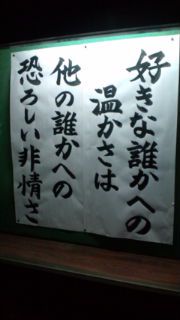 好きな誰かへの
温かさは
他の誰かへの
恐ろしい非情さ